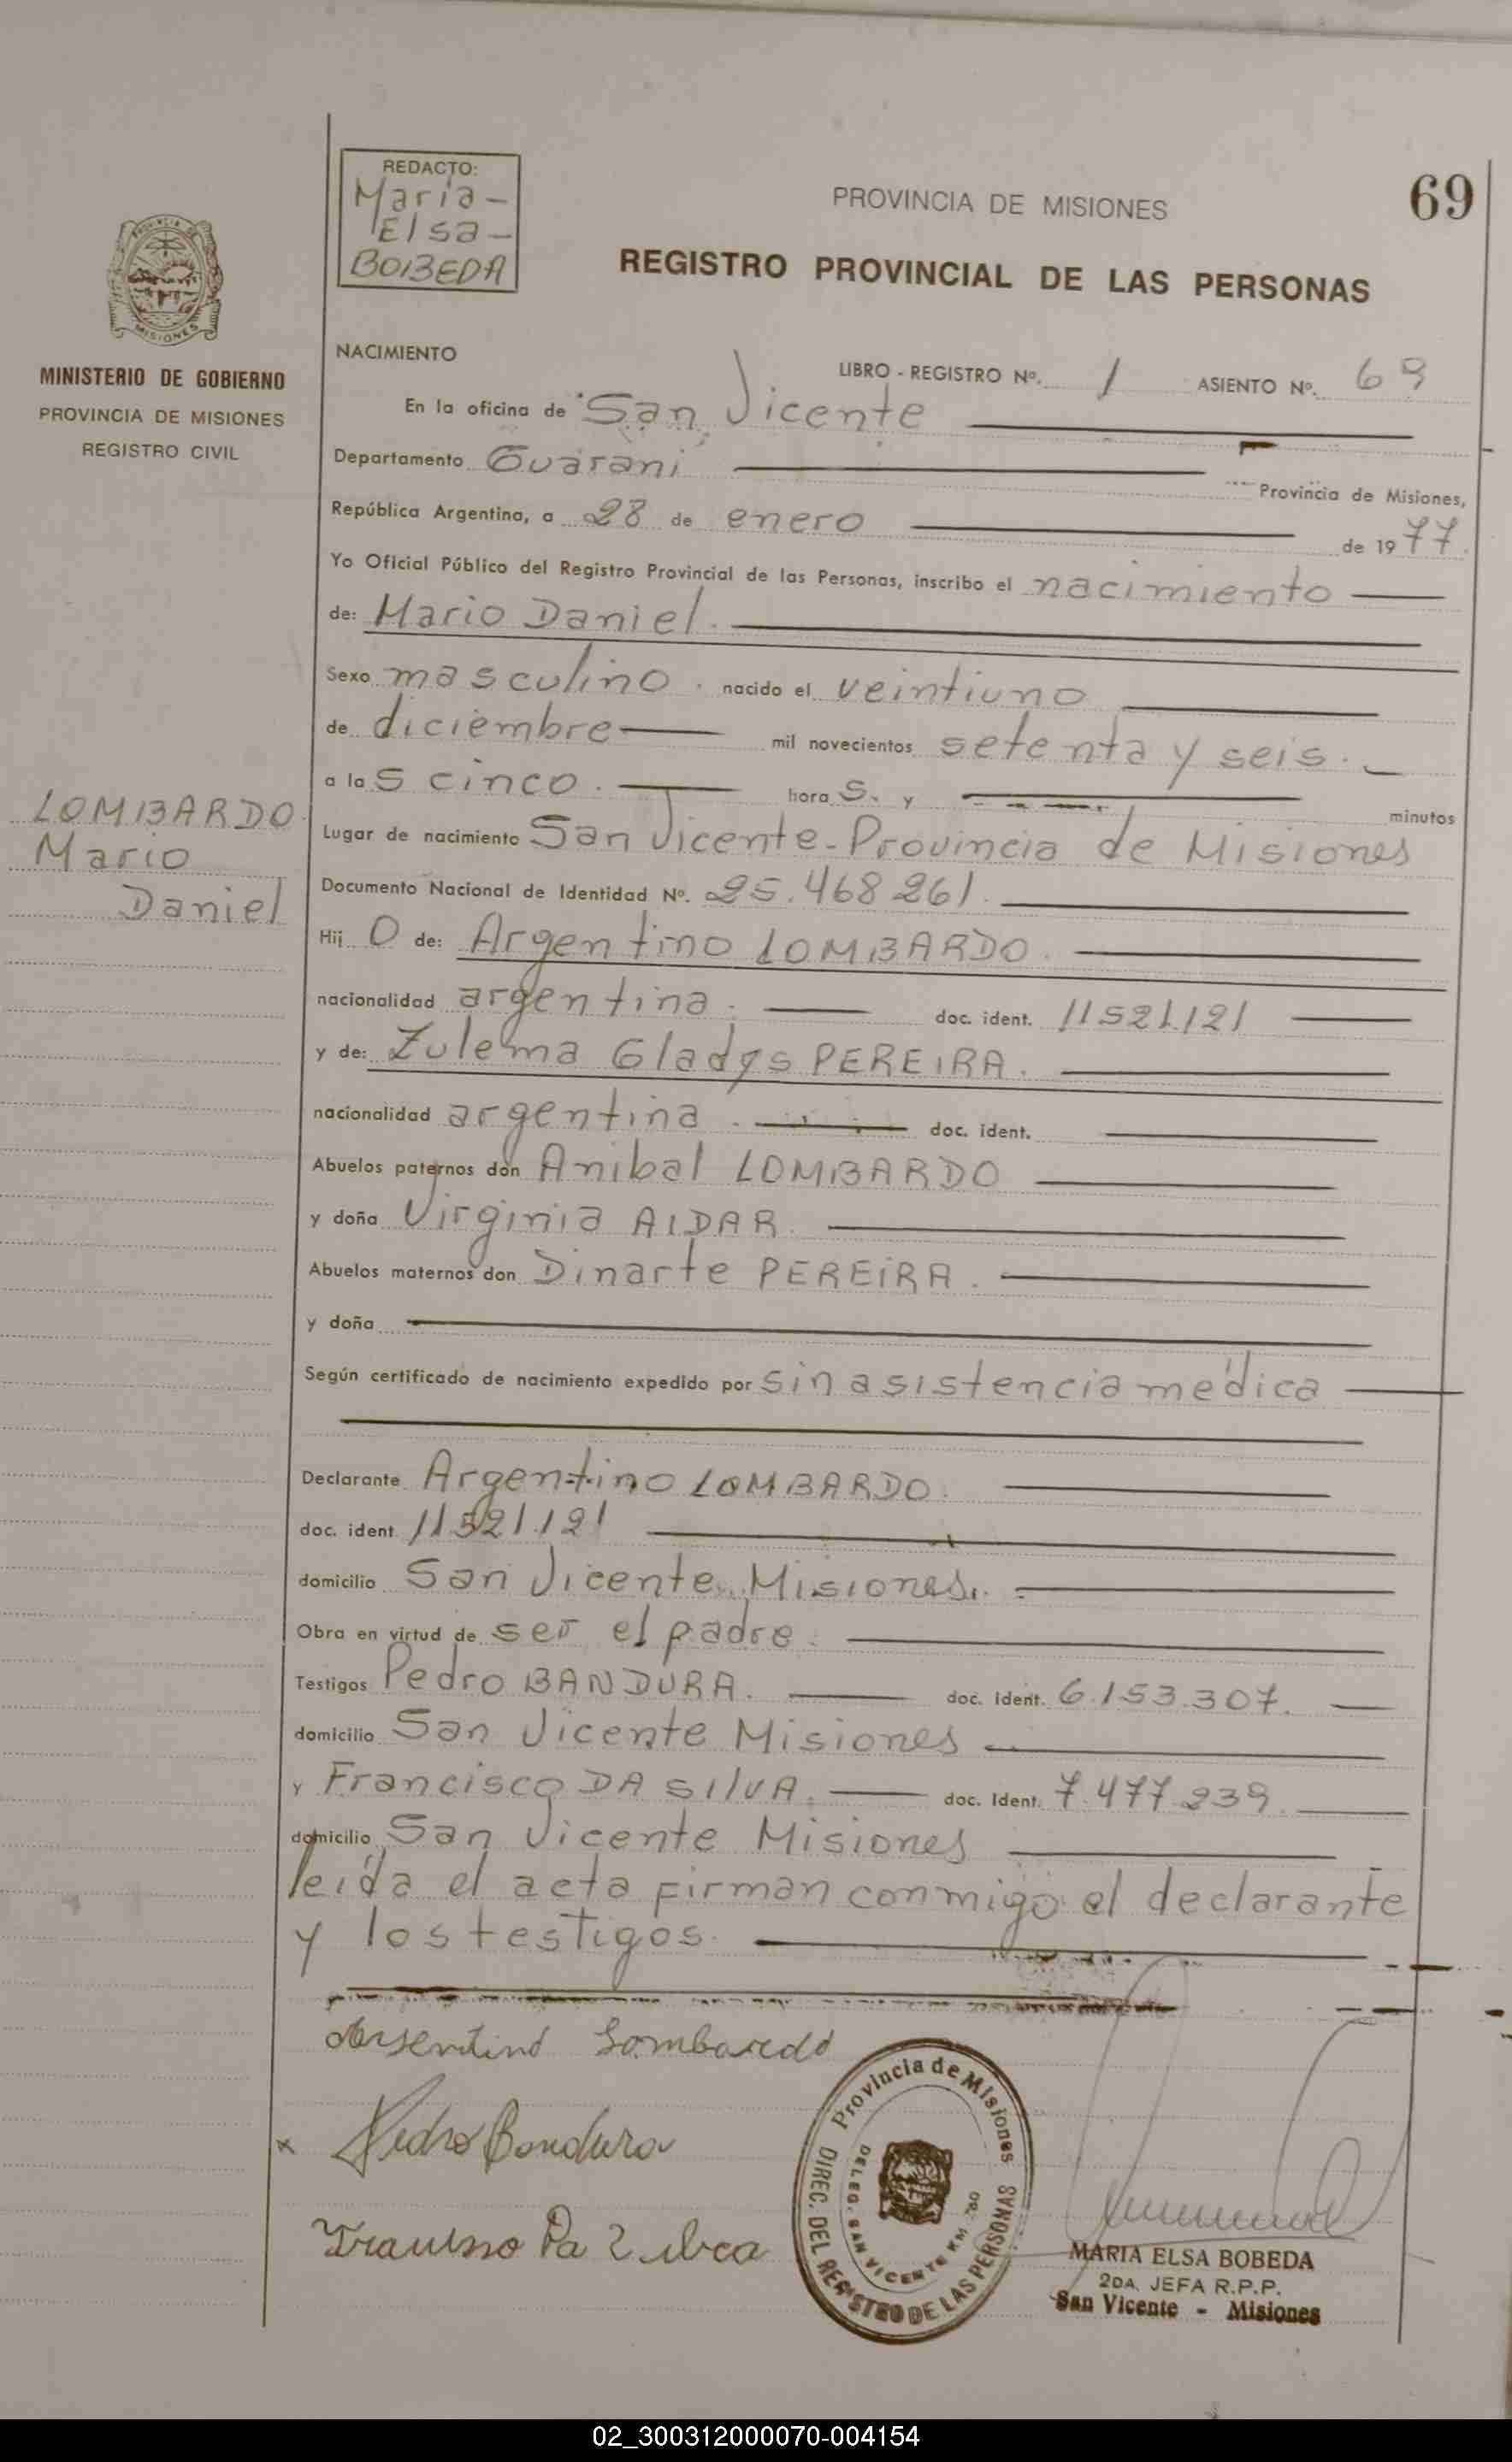 REDACTO:
Maria -
Elsa -
BOBEDA
PROVINCIA DE MISIONES
69
REGISTRO PROVINCIAL DE LAS PERSONAS
MINISTERIO DE GOBIERNO
PROVINCIA DE MISIONES
REGISTRO CIVIL
NACIMIENTO
LIBRO - REGISTRO Nº. 1 ASIENTO Nº. 69
En la oficina de San Vicente
Departamento Guarani Provincia de Misiones,
República Argentina, a 28 de enero de 1977.
Yo Oficial Público del Registro Provincial de las Personas, inscribo el nacimiento
de: Mario Daniel.
Sexo masculino. nacido el veintiuno
de diciembre mil novecientos setenta y seis.
a las cinco. horas. y minutos
LOMBARDO
Mario
Daniel
Lugar de nacimiento San Vicente - Provincia de Misiones
Documento Nacional de Identidad Nº. 25.468.261.
Hijo de: Argentino LOMBARDO.
nacionalidad argentina. doc. ident. 11521.121
y de: Zulema Gladys PEREIRA.
nacionalidad argentina. doc. ident.
Abuelos paternos don Anibal LOMBARDO
y doña Virginia AIDAR.
Abuelos maternos don Dinarte PEREIRA.
y doña
Según certificado de nacimiento expedido por sin asistencia médica
Declarante Argentino LOMBARDO.
doc. ident. 11.521.121
domicilio San Vicente Misiones.
Obra en virtud de ser el padre.
Testigos Pedro BANDURA. doc. ident. 6.153.307.
domicilio San Vicente Misiones
y Francisco DA SILVA. doc. Ident. 7.477.239.
domicilio San Vicente Misiones
leída el acta firman conmigo el declarante
y los testigos.
Argentino Lombardo
x Pedro Bandura
Provincia de Misiones
DIREC. DEL REGISTRO DE LAS PERSONAS
DELEG. SAN VICENTE KM 280
MARIA ELSA BOBEDA
2DA. JEFA R.P.P.
San Vicente - Misiones
02_300312000070-004154